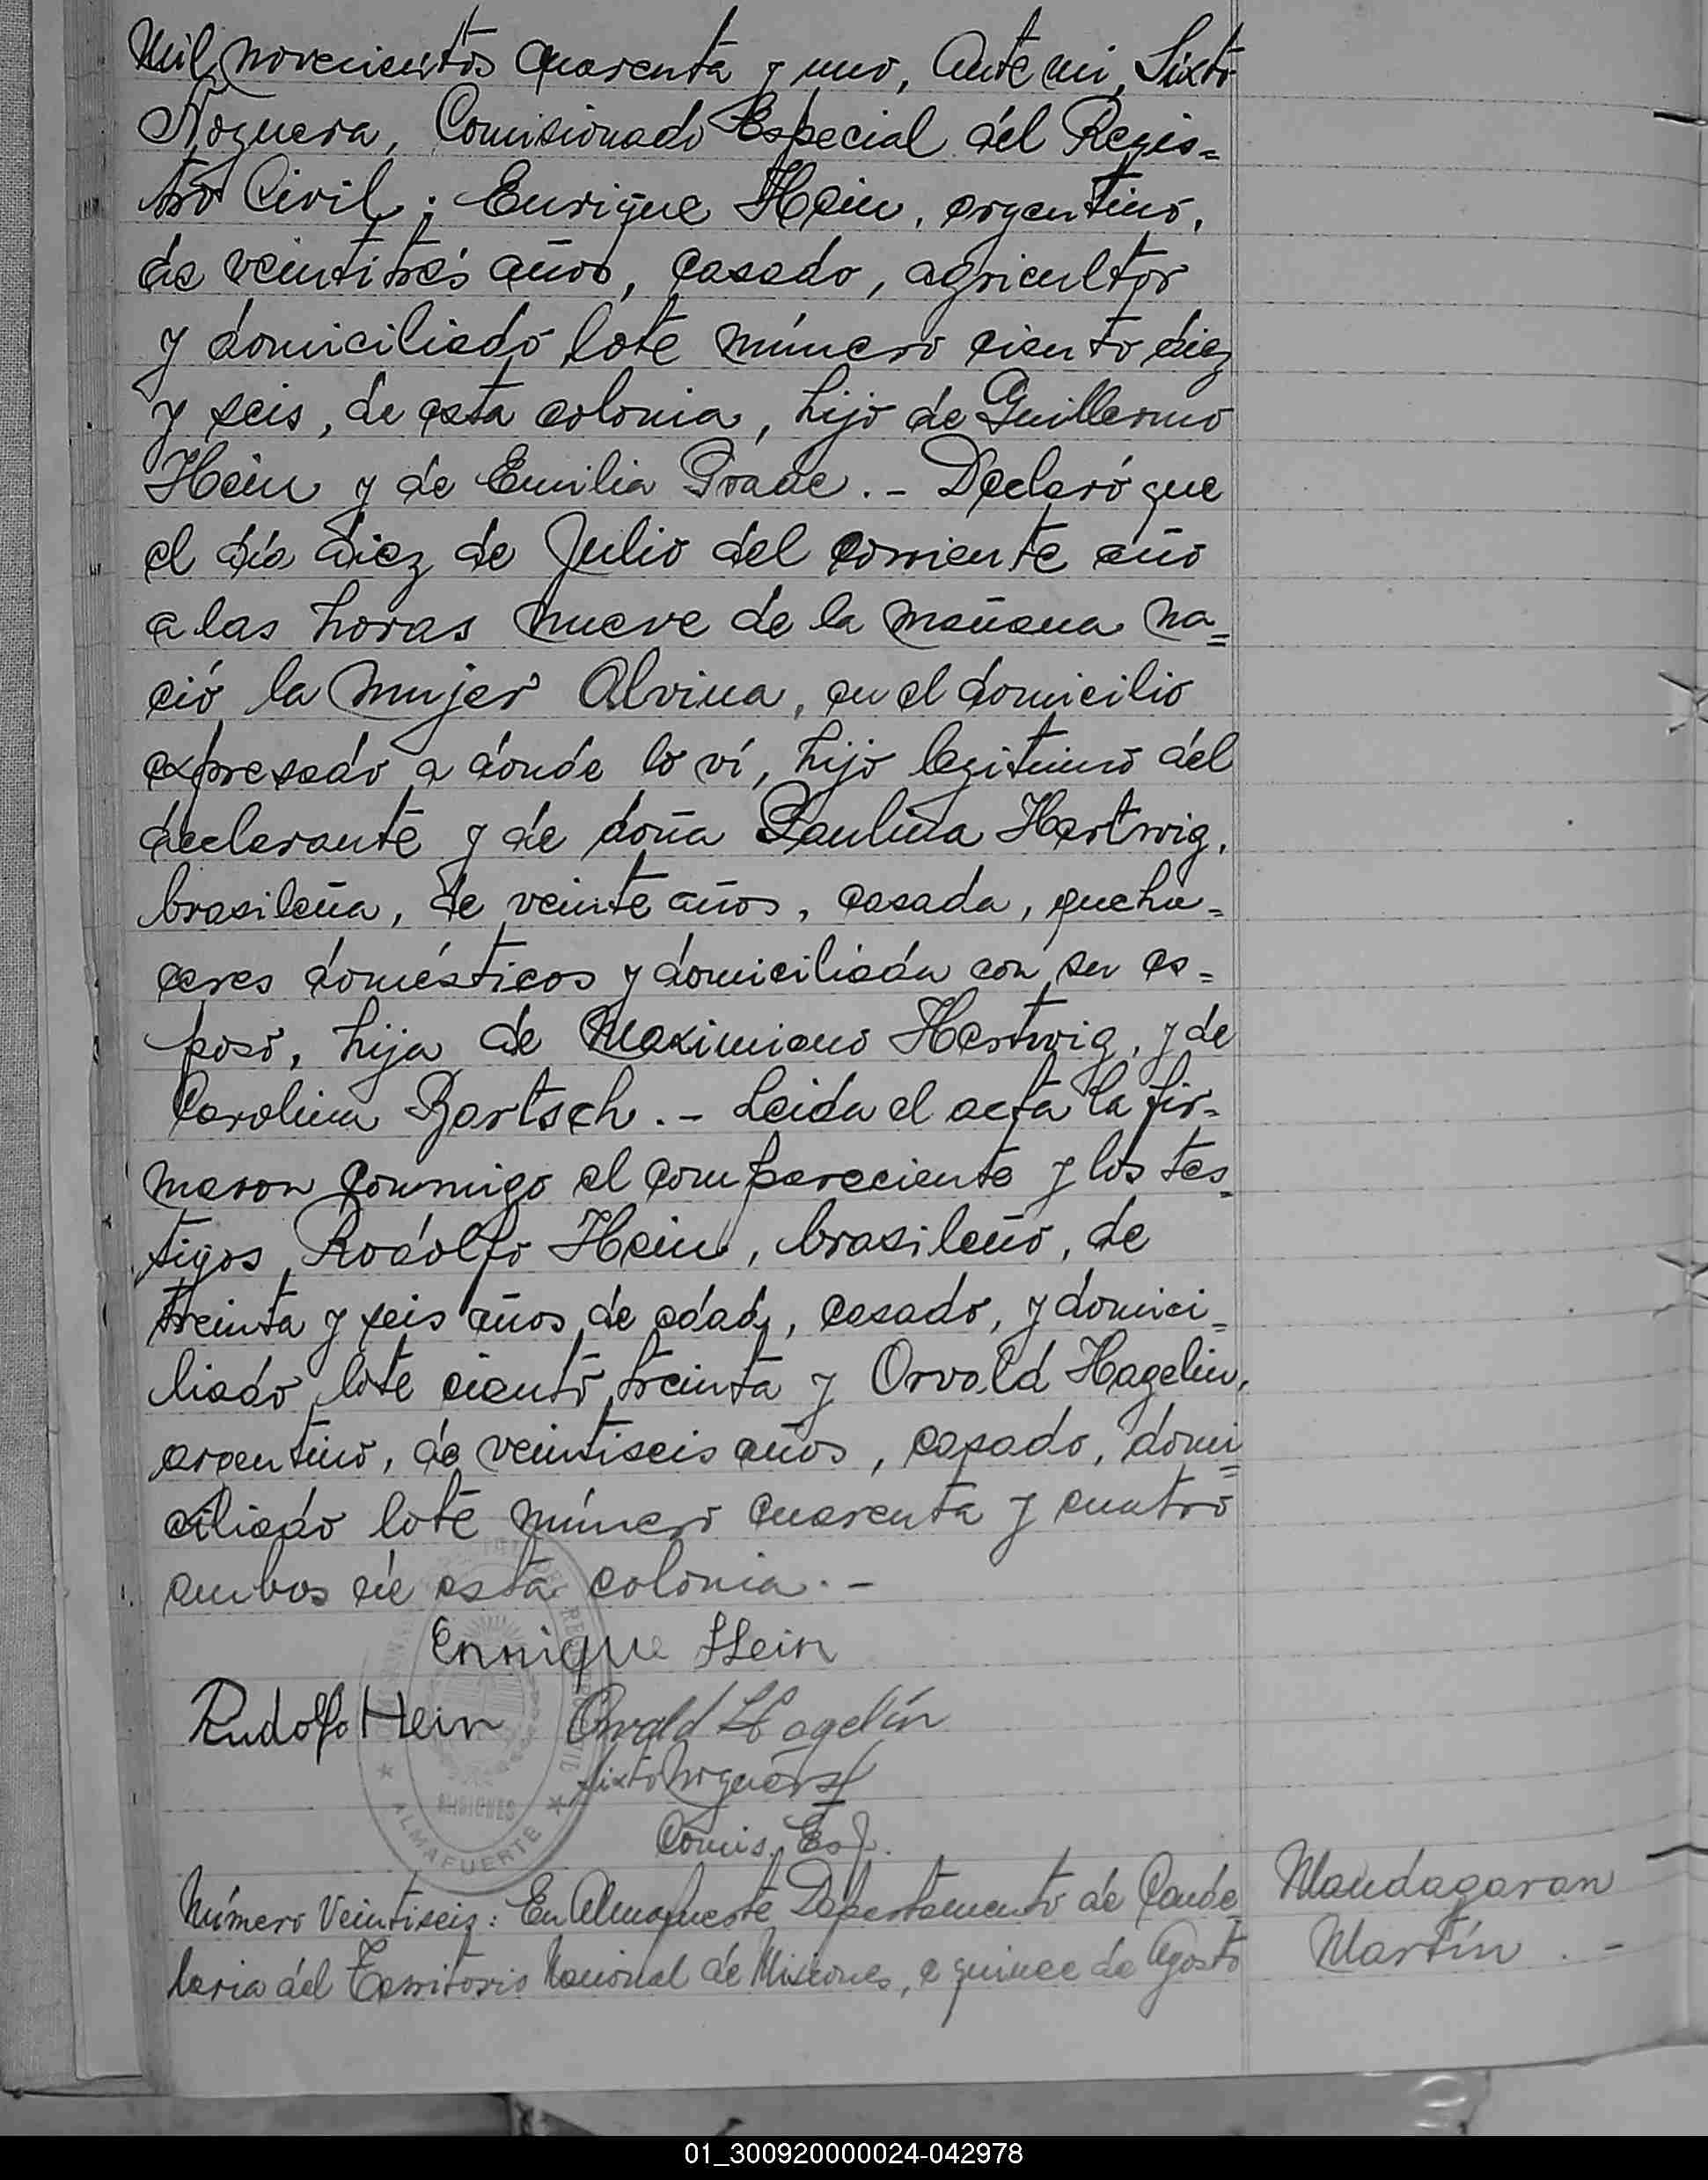 Mil novecientos cuarenta y uno, ante mi, Sixto
Noguera, Comisionado Especial del Regis=
tro Civil; Enrique Hein, argentino,
de veintitrés años, casado, agricultor
y domiciliado lote número ciento diez
y seis, de esta colonia, hijo de Guillermo
Hein y de Emilia Praue.- Declaró que
el día diez de Julio del corriente año
a las horas nueve de la mañana na=
ció la mujer Alvina, en el domicilio
expresado a donde lo ví, hijo legitimo del
declarante y de doña Paulina Hartwig,
brasileña, de veinte años, casada, queha=
ceres domésticos y domiciliada con su es=
poso, hija de Maximiano Hartwig, y de
Carolina Bartsch.- Leida el acta la fir=
maron conmigo el compareciente y los tes=
tigos, Rodolfo Hein, brasileño, de
treinta y seis años de edad, casado, y domici=
liado lote ciento treinta y Orvald Hagelin,
argentino, de veintiseis años, casado, domi=
ciliado lote número cuarenta y cuatro
ambos de esta colonia.-
Enrique Hein
Rudolfo Hein Orvald Hagelín
Sixto Noguera
Comis. Esp.
REGISTRO CIVIL
MISIONES
* ALMAFUERTE *
Número Veintiseis: En Almafuerte Departamento de Cande=
laria del Territorio Nacional de Misiones, a quince de Agosto
Mandagaran
Martín.-
01_300920000024-042978